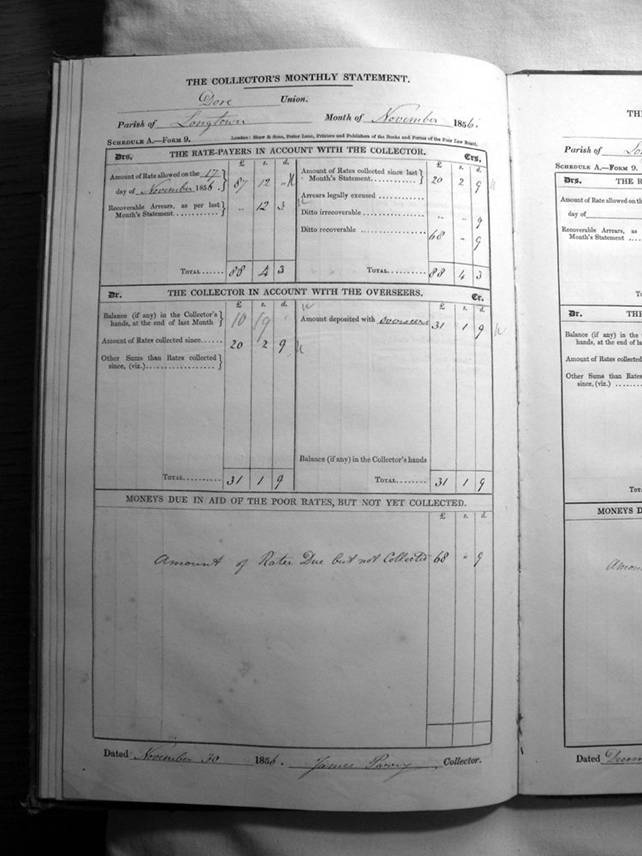 THE COLLECTOR'S MONTHLY STATEMENT.
Dore Union.
Parish of Longtown Month of November 1856.
London: Shaw & Sons, Fetter Lane, Printers and Publishers of the Books and Forms of the Poor Law Board.
SCHEDULE A.—FORM 9.
Drs. THE RATE-PAYERS IN ACCOUNT WITH THE COLLECTOR. Crs.
£ s. d. £ s. d.
Amount of Rate allowed on the 17 day of November 1856. 87 12 "
Recoverable Arrears, as per last Month's Statement " 12 3
TOTAL 88 4 3
Amount of Rates collected since last Month's Statement 20 2 9
Arrears legally excused
Ditto irrecoverable " " 9
Ditto recoverable 68 " 9
TOTAL 88 4 3
Dr. THE COLLECTOR IN ACCOUNT WITH THE OVERSEERS. Cr.
£ s. d. £ s. d.
Balance (if any) in the Collector's hands, at the end of last Month 10 19
Amount of Rates collected since 20 2 9
Other Sums than Rates collected since, (viz.)
TOTAL 31 1 9
Amount deposited with overseers 31 1 9
Balance (if any) in the Collector's hands
TOTAL 31 1 9
MONEYS DUE IN AID OF THE POOR RATES, BUT NOT YET COLLECTED.
£ s. d.
Amount of Rates Due but not Collected 68 " 9
Dated November 30 1856. James Parry Collector.
TH
Parish of Lo
SCHEDULE A.—FORM 9.
Drs. THE R
Amount of Rate allowed on
day of
Recoverable Arrears, as
Month's Statement
TOTAL
Dr. TH
Balance (if any) in the
hands, at the end of la
Amount of Rates collected
Other Sums than Rates
since, (viz.)
TOT
MONEYS D
Amoun
Dated Decem